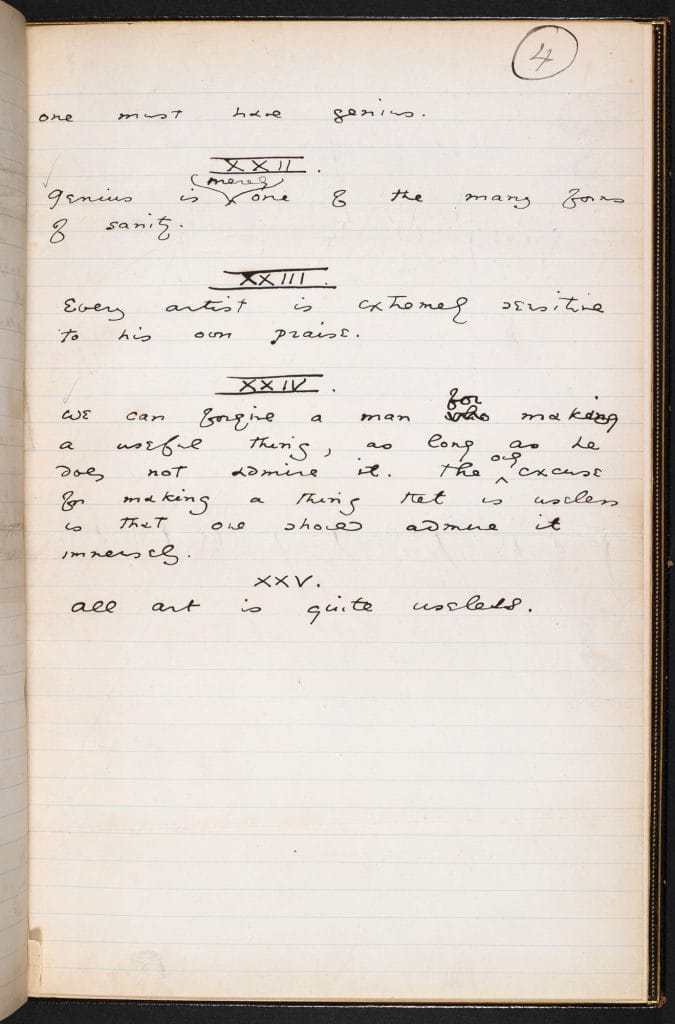 4
one must have genius.
XXII.
merely
Genius is one of the many forms
of sanity.
XXIII.
Every artist is extremely sensitive
to his own praise.
XXIV.
for
We can forgive a man who making
a useful thing, as long as he
only
does not admire it. The excuse
for making a thing that is useless
is that one should admire it
immensely.
XXV.
All art is quite useless.